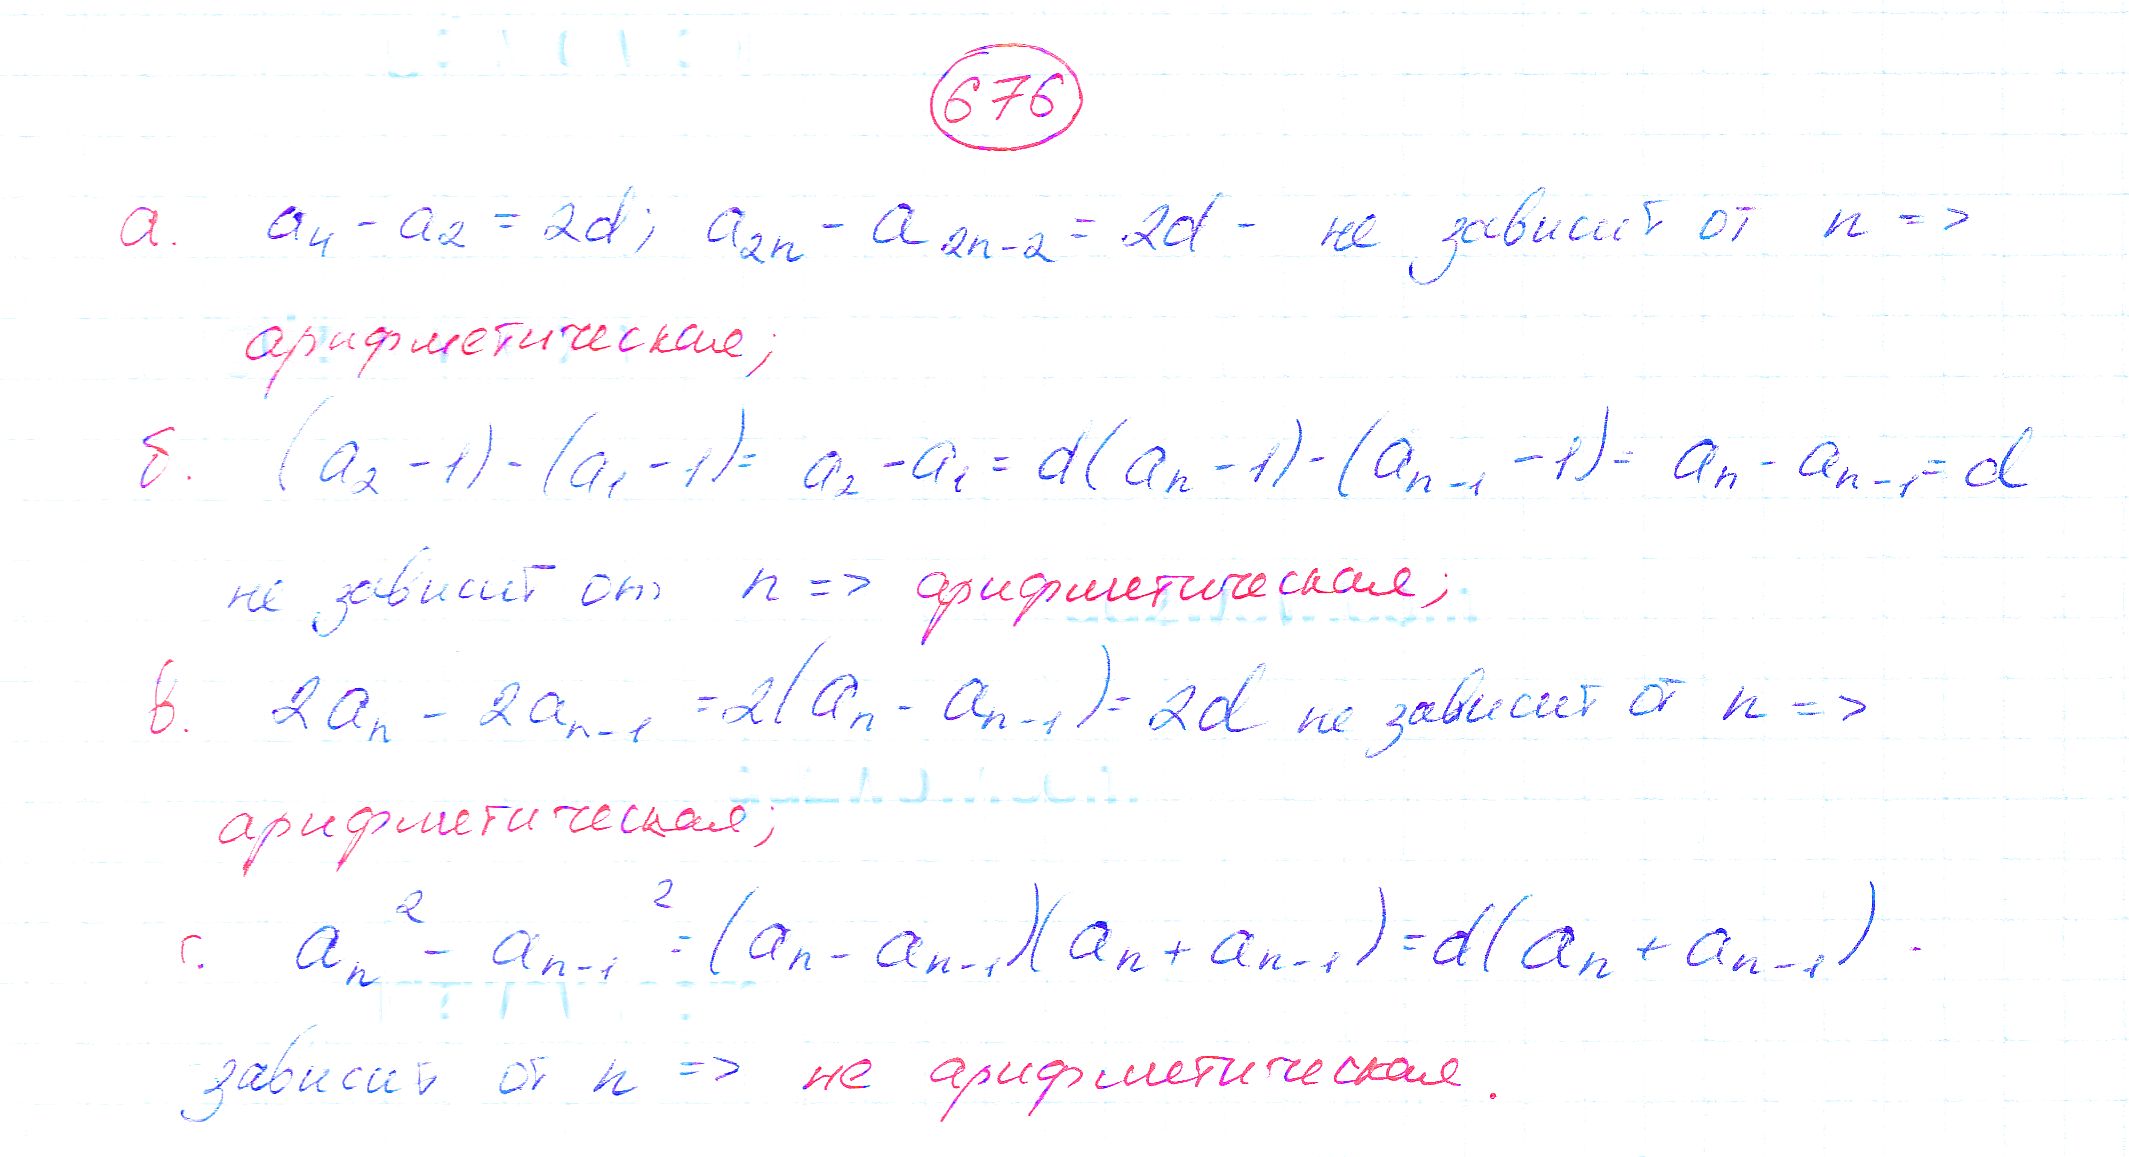 676
а. a₄ - a₂ = 2d; a₂ₙ - a₂ₙ₋₂ = 2d - не зависит от n =>
арифметическая;
б. (a₂ - 1) - (a₁ - 1) = a₂ - a₁ = d (aₙ - 1) - (aₙ₋₁ - 1) = aₙ - aₙ₋₁ = d
не зависит от n => арифметическая;
в. 2aₙ - 2aₙ₋₁ = 2(aₙ - aₙ₋₁) = 2d не зависит от n =>
арифметическая;
г. aₙ² - aₙ₋₁² = (aₙ - aₙ₋₁)(aₙ + aₙ₋₁) = d(aₙ + aₙ₋₁) -
зависит от n => не арифметическая.